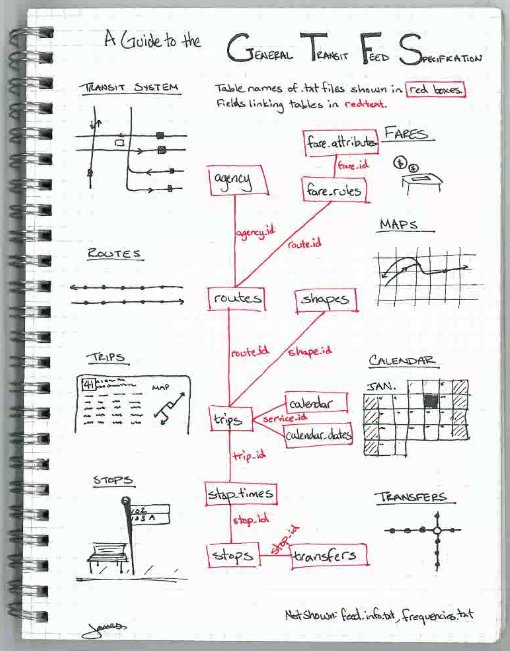 A Guide to the General Transit Feed Specification
Table names of .txt files shown in red boxes.
Fields linking tables in red text.
TRANSIT SYSTEM
fare_attributes
FARES
fare_id
agency
fare_rules
$ $
agency_id
route_id
MAPS
ROUTES
routes
shapes
route_id
shape_id
TRIPS
CALENDAR
41
MAP
JAN.
calendar
trips
service_id
calendar_dates
trip_id
STOPS
stop_times
TRANSFERS
102
103A
stop_id
stop_id
stops
transfers
Not shown: feed_info.txt, frequencies.txt
James